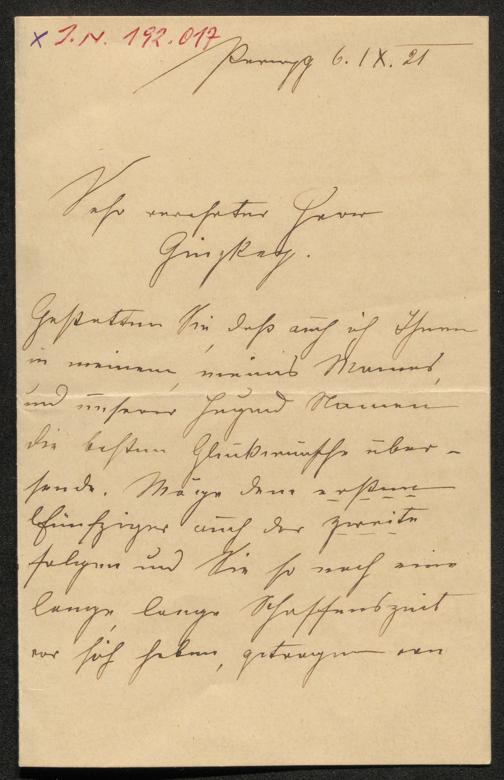 x I.N. 192.017
Pernegg 6. IX. 21
Sehr verehrter Herr
Ginzkey.
Gestatten Sie, daß auch ich Ihnen
in meinem, meines Mannes,
und unserer Jugend Namen
die besten Glückwünsche über-
sende. Möge dem ersten
Fünfziger auch der zweite
folgen und Sie so noch eine
lange, lange Schaffenszeit
vor sich haben, getragen von